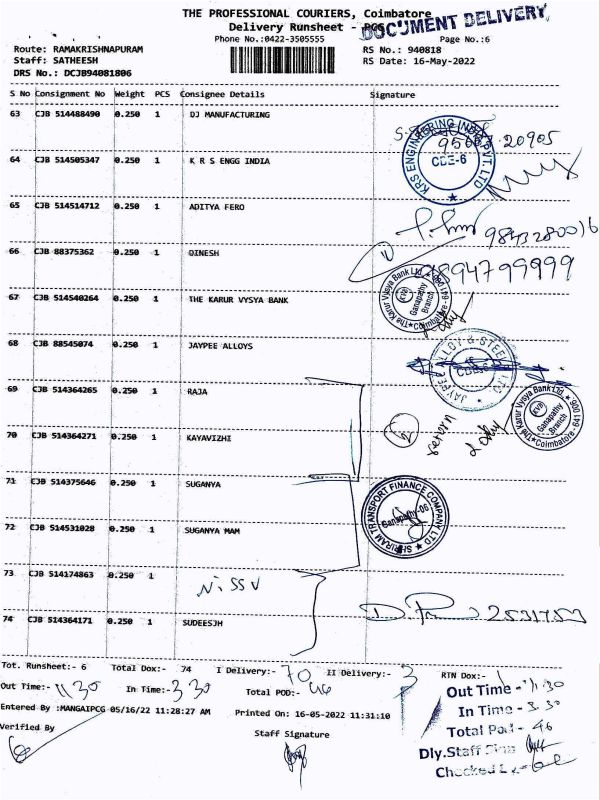 THE PROFESSIONAL COURIERS, Coimbatore
Delivery Runsheet - PCG
DOCUMENT DELIVERY
Phone No.:0422-3505555
Page No.:6
Route: RAMAKRISHNAPURAM
RS No.: 940818
Staff: SATHEESH
RS Date: 16-May-2022
DRS No.: DCJB94081806
S No Consignment No Weight PCS Consignee Details Signature
63 CJB 514488490 0.250 1 DJ MANUFACTURING
KRS ENGINEERING INDIA PVT. LTD
CBE-6
64 CJB 514505347 0.250 1 K R S ENGG INDIA
65 CJB 514514712 0.250 1 ADITYA FERO
66 CJB 88375362 0.250 1 DINESH
9894799999
67 CJB 514540264 0.250 1 THE KARUR VYSYA BANK
The Karur Vysya Bank Ltd.
KVB
Ganapathy
Branch
68 CJB 88545074 0.250 1 JAYPEE ALLOYS
JAYPEE ALLOY & STEEL
CBE-6
69 CJB 514364265 0.250 1 RAJA
The Karur Vysya Bank Ltd. * Coimbatore - 641 006
KVB
Ganapathy
Branch
70 CJB 514364271 0.250 1 KAYAVIZHI
return
71 CJB 514375646 0.250 1 SUGANYA
SHRIRAM TRANSPORT FINANCE COMPANY LTD
Ganapathy-06
72 CJB 514531028 0.250 1 SUGANYA MAM
73 CJB 514174863 0.250 1 NiSSV
74 CJB 514364171 0.250 1 SUDEESJH
2531753
Tot. Runsheet:- 6 Total Dox:- 74 I Delivery:- 70 II Delivery:- 3 RTN Dox:-
Out Time:- 11 30 In Time:- 3 30 Total POD:- 46
Out Time - 11.30
In Time - 3.30
Total Pod - 46
Dly.Staff Sign
Checked
Entered By :MANGAIPCG 05/16/22 11:28:27 AM Printed On: 16-05-2022 11:31:10
Verified By
Staff Signature